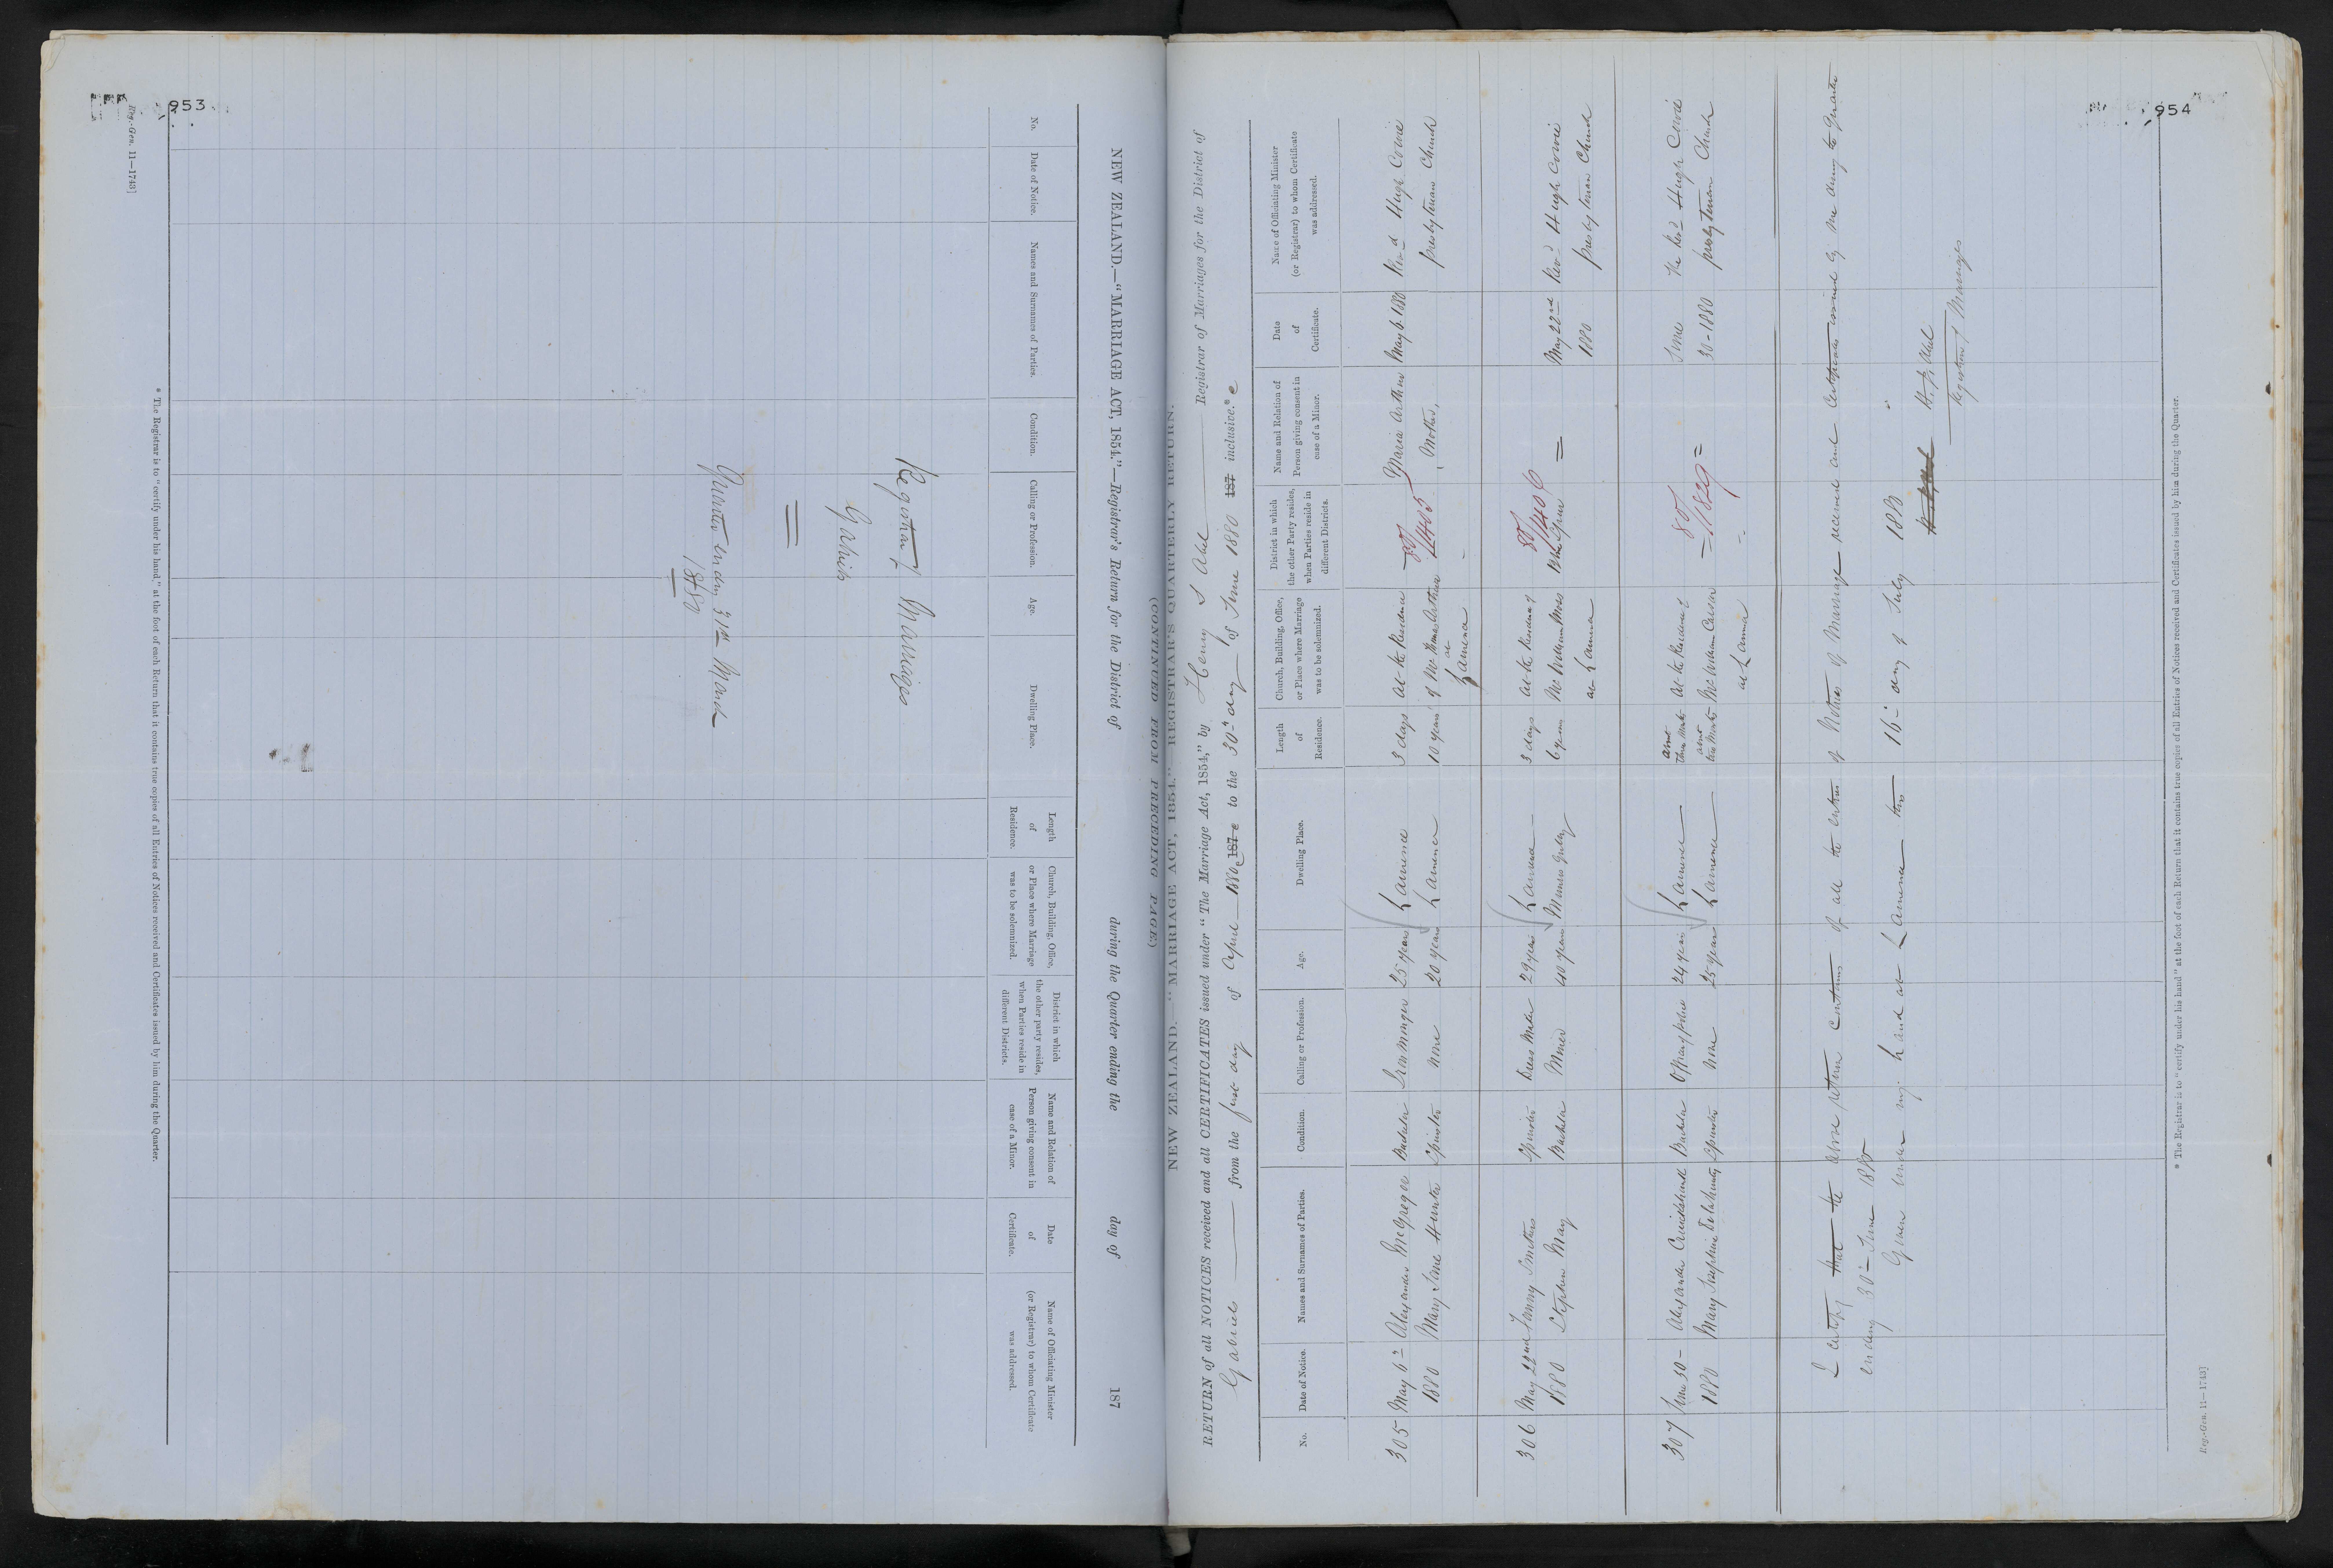 953
Reg.-Gen. 11—1743]
NEW ZEALAND.—"MARRIAGE ACT, 1854."—Registrar's Return for the District of during the Quarter ending the day of 187
No.
Date of Notice.
Names and Surnames of Parties.
Condition.
Calling or Profession.
Age.
Dwelling Place.
Length of Residence.
Church, Building, Office, or Place where Marriage was to be solemnized.
District in which the other party resides, when Parties reside in different Districts.
Name and Relation of Person giving consent in case of a Minor.
Date of Certificate.
Name of Officiating Minister (or Registrar) to whom Certificate was addressed.
Marriages
Quarter ending 31st March
1880
* The Registrar is to "certify under his hand," at the foot of each Return that it contains true copies of all Entries of Notices received and Certificates issued by him during the Quarter.
954
(CONTINUED FROM PRECEDING PAGE)
NEW ZEALAND.—"MARRIAGE ACT, 1854." REGISTRAR'S QUARTERLY RETURN.
RETURN of all NOTICES received and all CERTIFICATES issued under "The Marriage Act, 1854," by Henry J Abel Registrar of Marriages for the District of
Gabriel from the first day of April 1880 187 to the 30th day of June 1880 187 inclusive.*
No.
Date of Notice.
Names and Surnames of Parties.
Condition.
Calling or Profession.
Age.
Dwelling Place.
Length of Residence.
Church, Building, Office, or Place where Marriage was to be solemnized.
District in which the other Party resides, when Parties reside in different Districts.
Name and Relation of Person giving consent in case of a Minor.
Date of Certificate.
Name of Officiating Minister (or Registrar) to whom Certificate was addressed.
305 May 6th Alexander McGregor Bachelor Ironmonger 25 years Lawrence 3 days At the Residence 80/ Maria Arthur May 6 1880 Revd Hugh Cowie
1880 Mary Jane Hunter Spinster none 20 years Lawrence 10 years of Mr Thomas Arthur 1405 Mother, Presbyterian Church
at
Lawrence
306 May 22nd Fanny Smithers Spinster Dress Maker 29 years Lawrence 3 days At the Residence of 80/1406 May 22nd Revd Hugh Cowie
1880 Stephen May Bachelor Miner 40 years Munros Gully 6 years Mr William Moss 1880 Presbyterian Church
at Lawrence
307 June 30 Alexander Cruickshank Bachelor 24 years Lawrence about three weeks At the Residence of 80/ June The Revd Hugh Cowie
1880 Mary Josephine Delahunty Spinster none 25 years Lawrence about Mr William Carson 1829 30-1880 Presbyterian Church
at Lawrence
I certify that the above return contains of all the entries of Notices of Marriage received and Certificates issued by me during the Quarter
ending 30th June 1880
Given under my hand at Lawrence this 16th day of July 1880
H. J. Abel
Registrar of Marriages
* The Registrar is to "certify under his hand" at the foot of each Return that it contains true copies of all Entries of Notices received and Certificates issued by him during the Quarter.
Reg.-Gen. 11—1743]